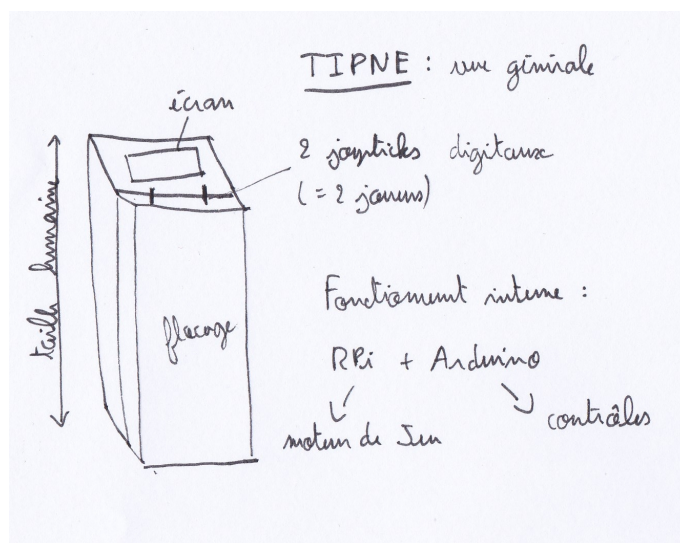 TIPNE : vue générale
écran
2 joysticks digitaux
(= 2 joueurs)
taille humaine
placage
Fonctionnement interne :
RPi + Arduino
moteur de Jeu
contrôles